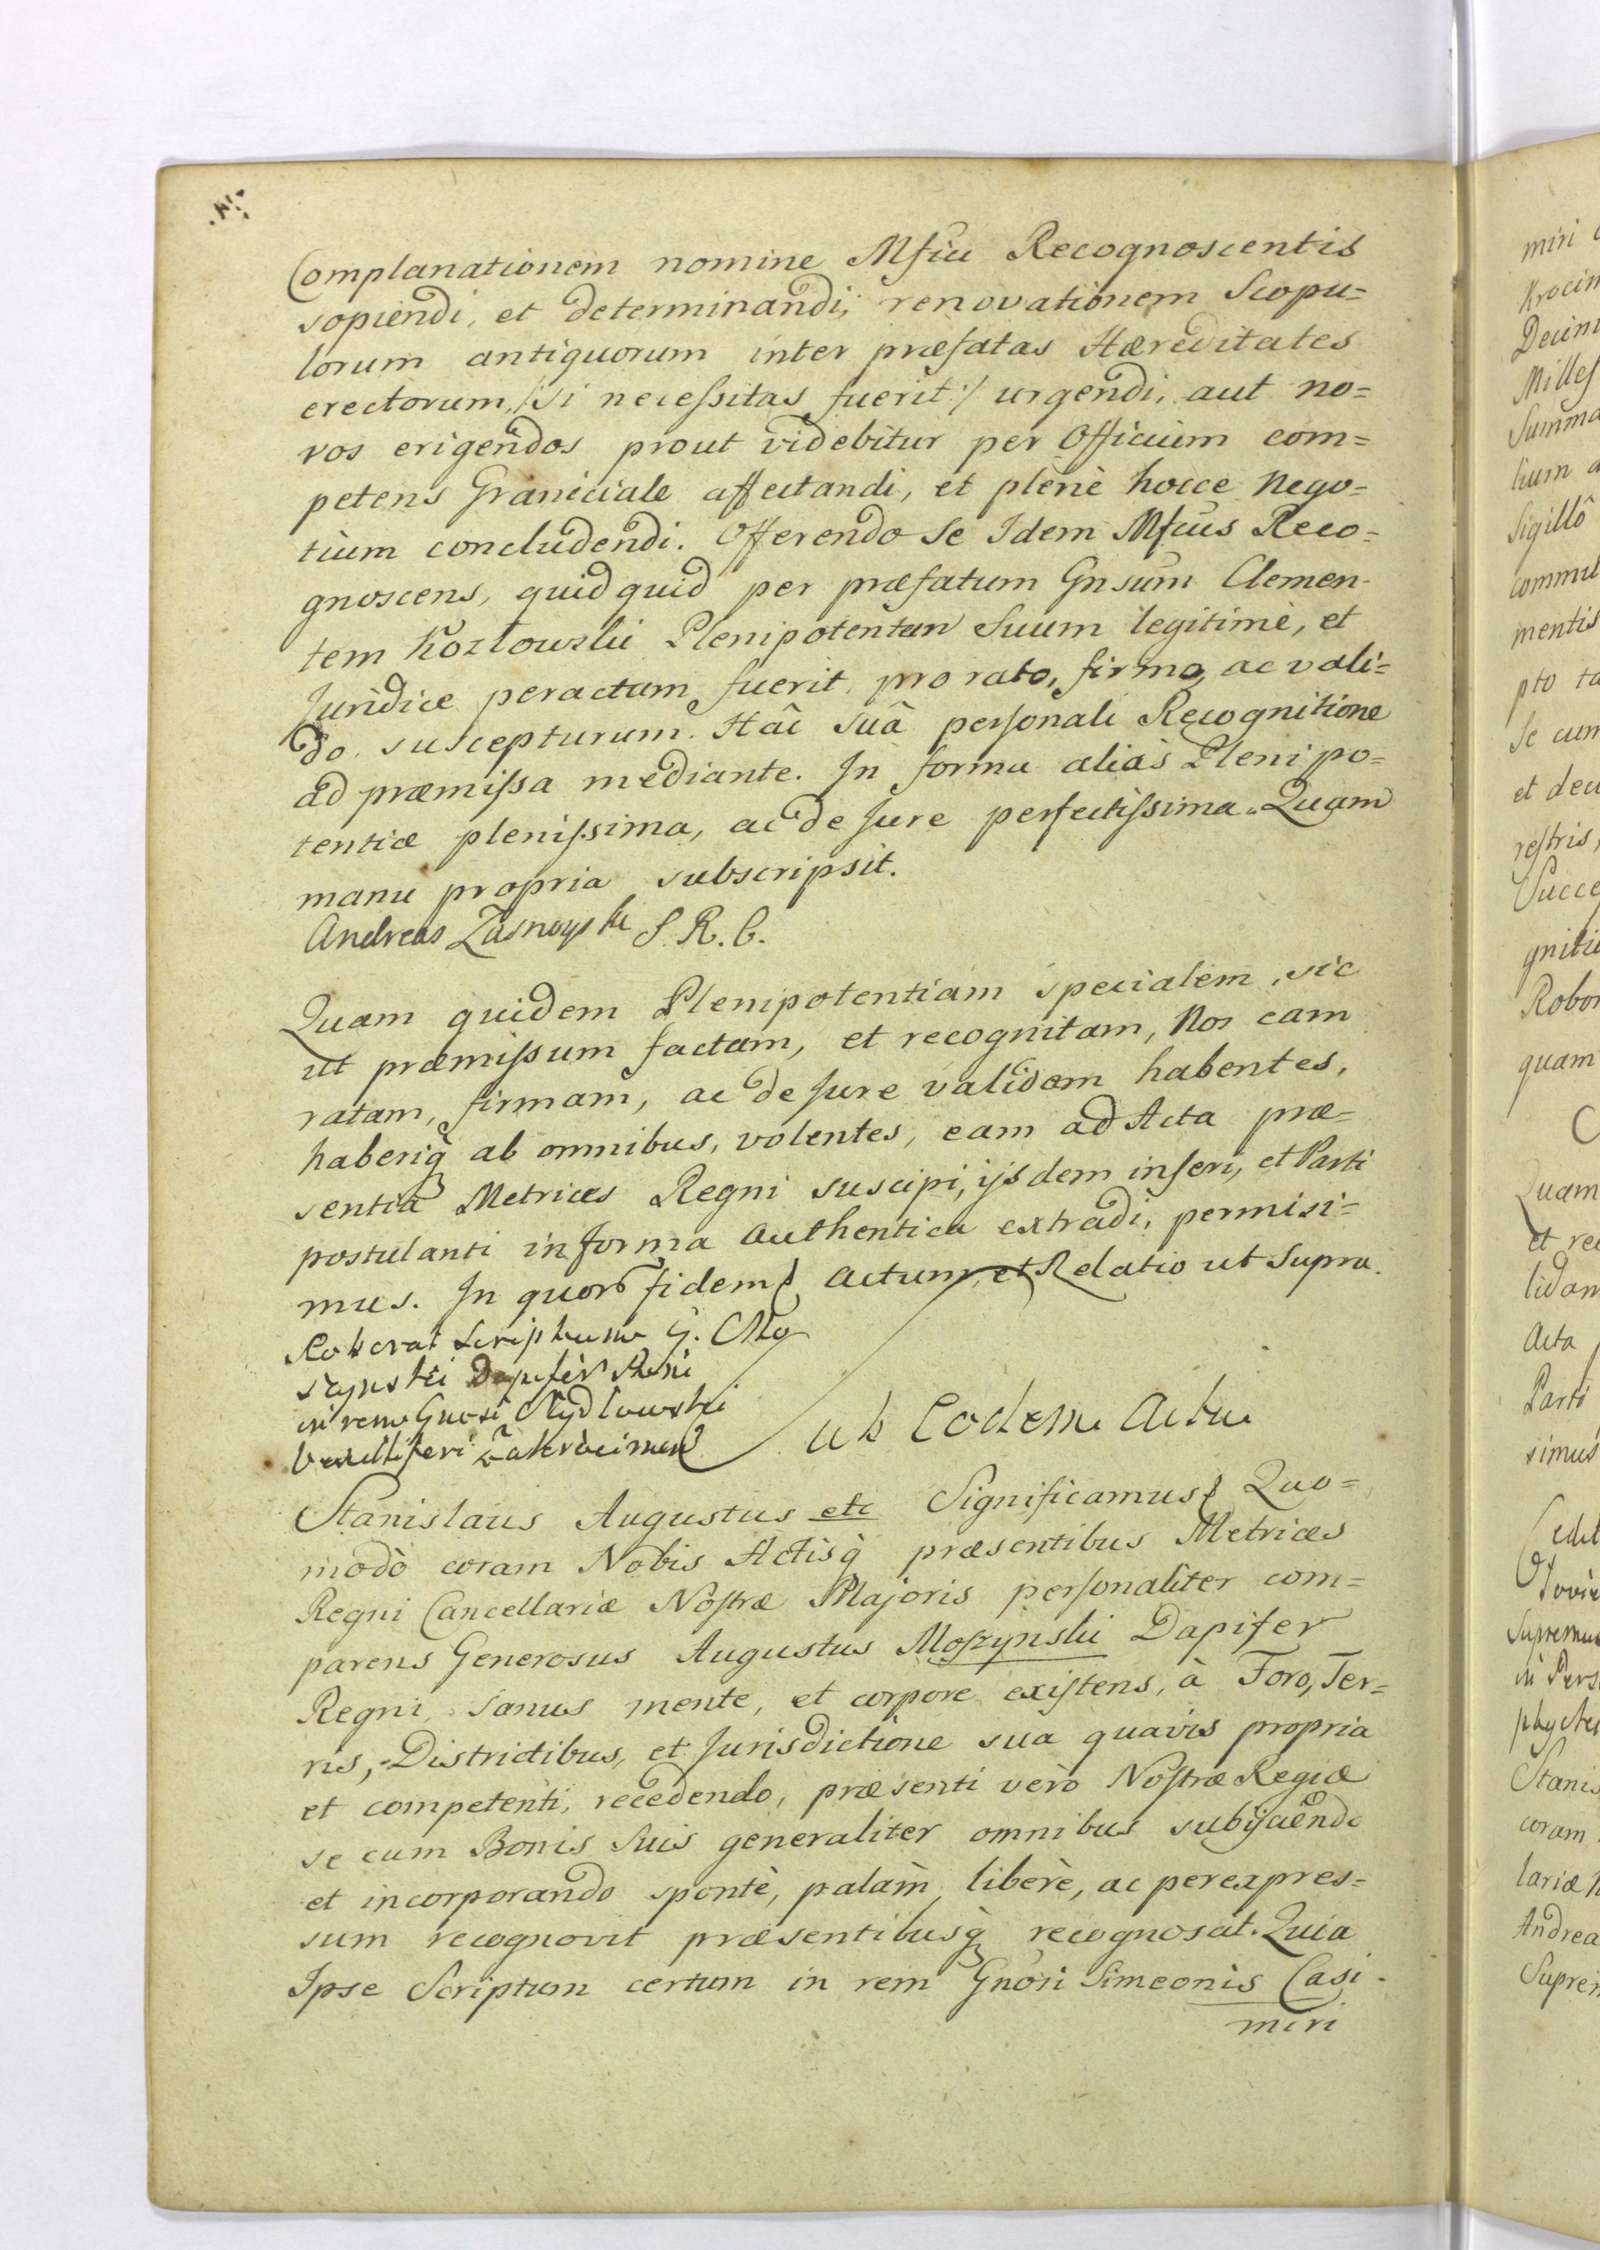 Complanationem nomine Msici Recognoscentis
sopiendi, et determinandi; renovationem Scopu=
lorum antiquorum inter præfatas Hæreditates
erectorum, /:si necessitas fuerit:/ urgendi, aut no=
vos erigendos prout videbitur per Officium com=
petens Graniciale affectandi, et plenè hocce Nego=
tium concludendi. Offerendo Se Idem Mficus Reco=
gnoscens, quidquid per præfatum Gnsum Clemen-
tem Kozlowski Plenipotentem Suum legitimè, et
Juridice peractum fuerit, pro rato, firmo, ac vali=
do suscepturum. Hâc suâ personali Recognitione
ad præmissa mediante. In forma alias Plenipo=
tentiæ plenissima, ac de Jure perfectissima. Quam
manu propria subscripsit.
Andreas Zamoyski S. R. C.
Quam quidem Plenipotentiam specialem, sic
ut præmissum factam, et recognitam, Nos eam
ratam, firmam, ac de Jure validam habentes,
haberiq̀ ab omnibus, volentes, eam ad Acta præ=
sentia Metrices Regni suscipi, ijsdem inseri, et Parti
postulanti in forma authentica extradi, permisi=
mus. In quor̃ fidem Actum, et Relatio ut Supra.
Roborat Scriptum G. Mo
szynski Dapifer Regni
in rem Gnosi Szydlowski
Vexilliferi Zakrocimen̄
ub Eodem Actu
Stanislaus Augustus etc Significamus Quo=
modò coram Nobis Actisq̀ præsentibus Metrices
Regni Cancellariæ Nostræ Majoris personaliter com=
parens Generosus Augustus Moszynski Dapifer
Regni, Sanus mente, et corpore existens, à Foro, Ter=
ris, Districtibus, et Jurisdictione sua quavis propria
et competenti, recedendo, præsenti verò Nostræ Regiæ
se cum Bonis Suis generaliter omnibus subijciendo
et incorporando spontè, palàm, liberè, ac per expres=
sum recognovit præsentibusq̀ recognoscit. Quia
Ipse Scriptum certum in rem Gnosi Simeonis Casi-
miri